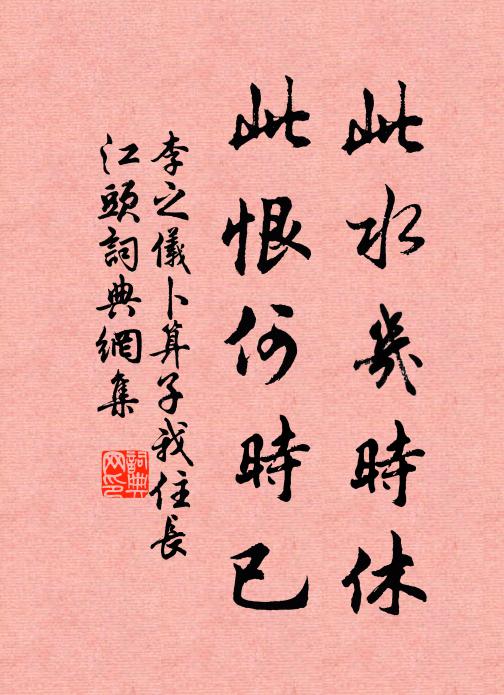 此水幾時休
此恨何時已
李之儀卜算子我住長
江頭詞典網集
詞典網印